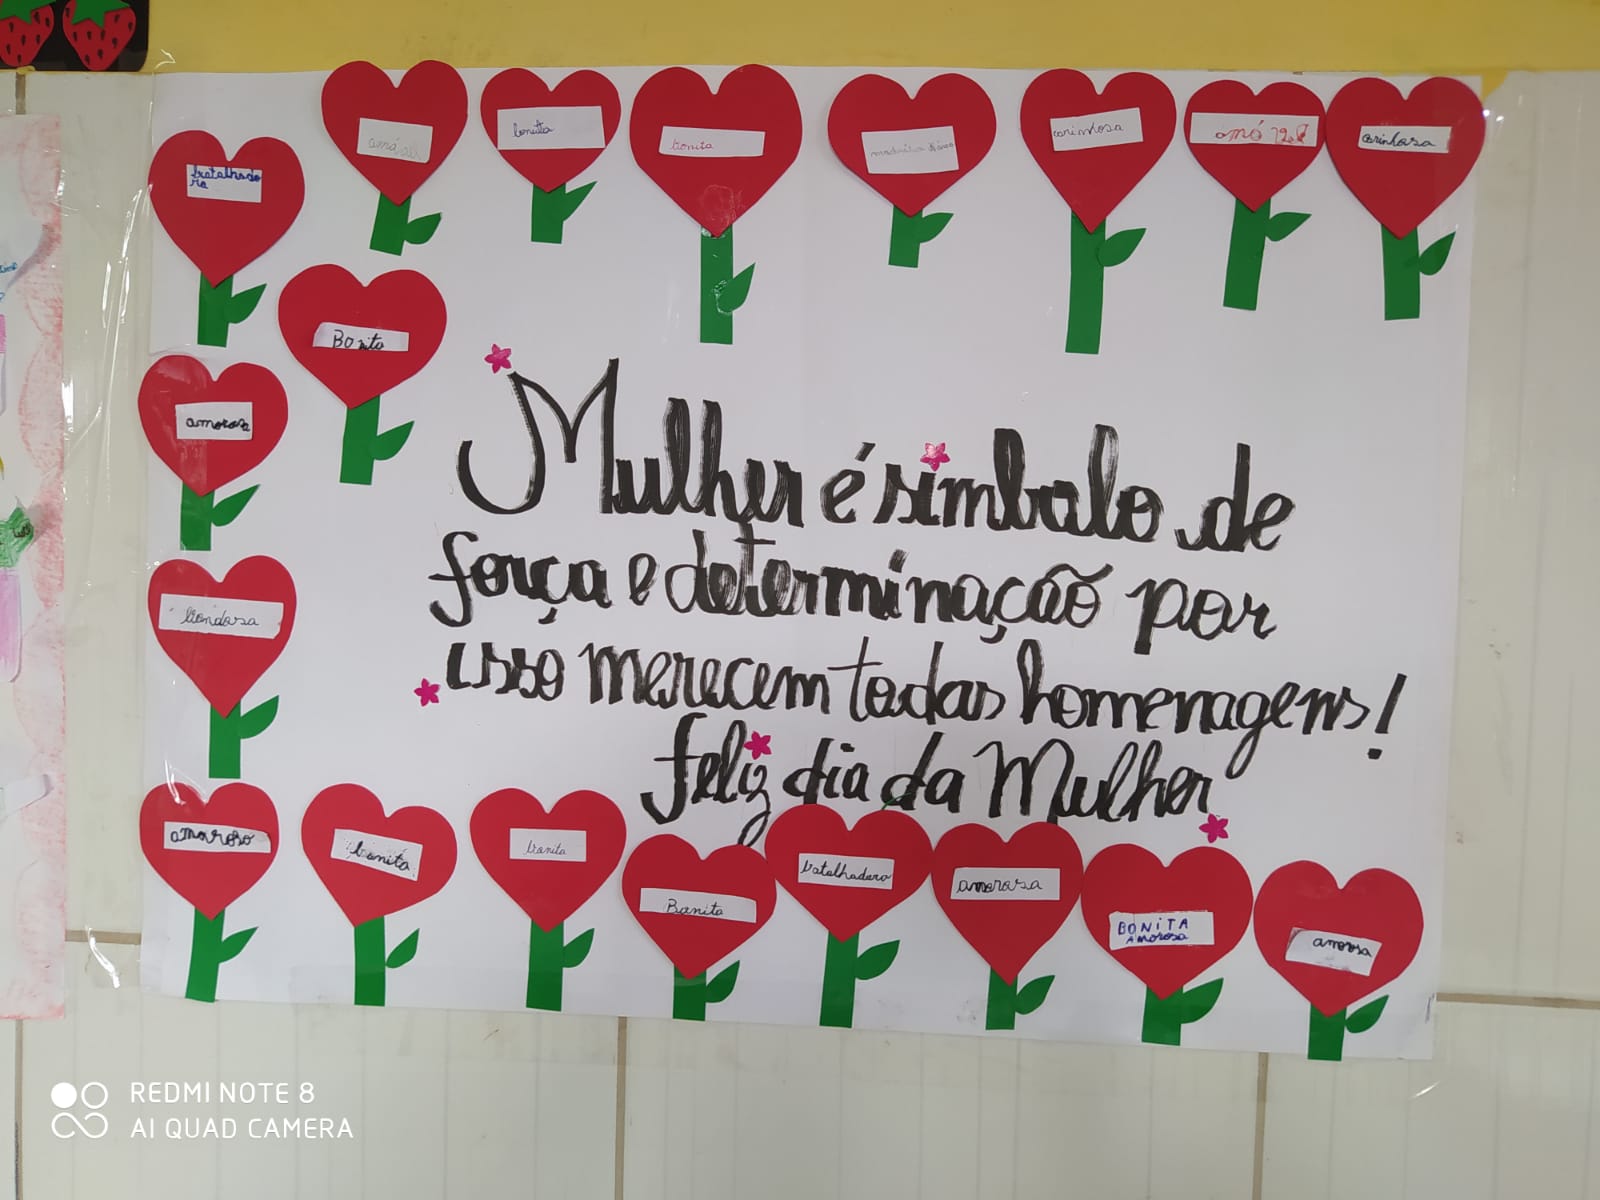 bonita
bonita
carinhosa
carinhosa
batalhado
ra
Bonita
amorosa
Mulher é simbolo de
força e determinação por
isso merecem todas homenagens!
Feliz dia da Mulher
bondosa
amoroso
bonita
bonita
Bonita
batalhadora
amorosa
BONITA
AMOROSA
amorosa
REDMI NOTE 8
AI QUAD CAMERA